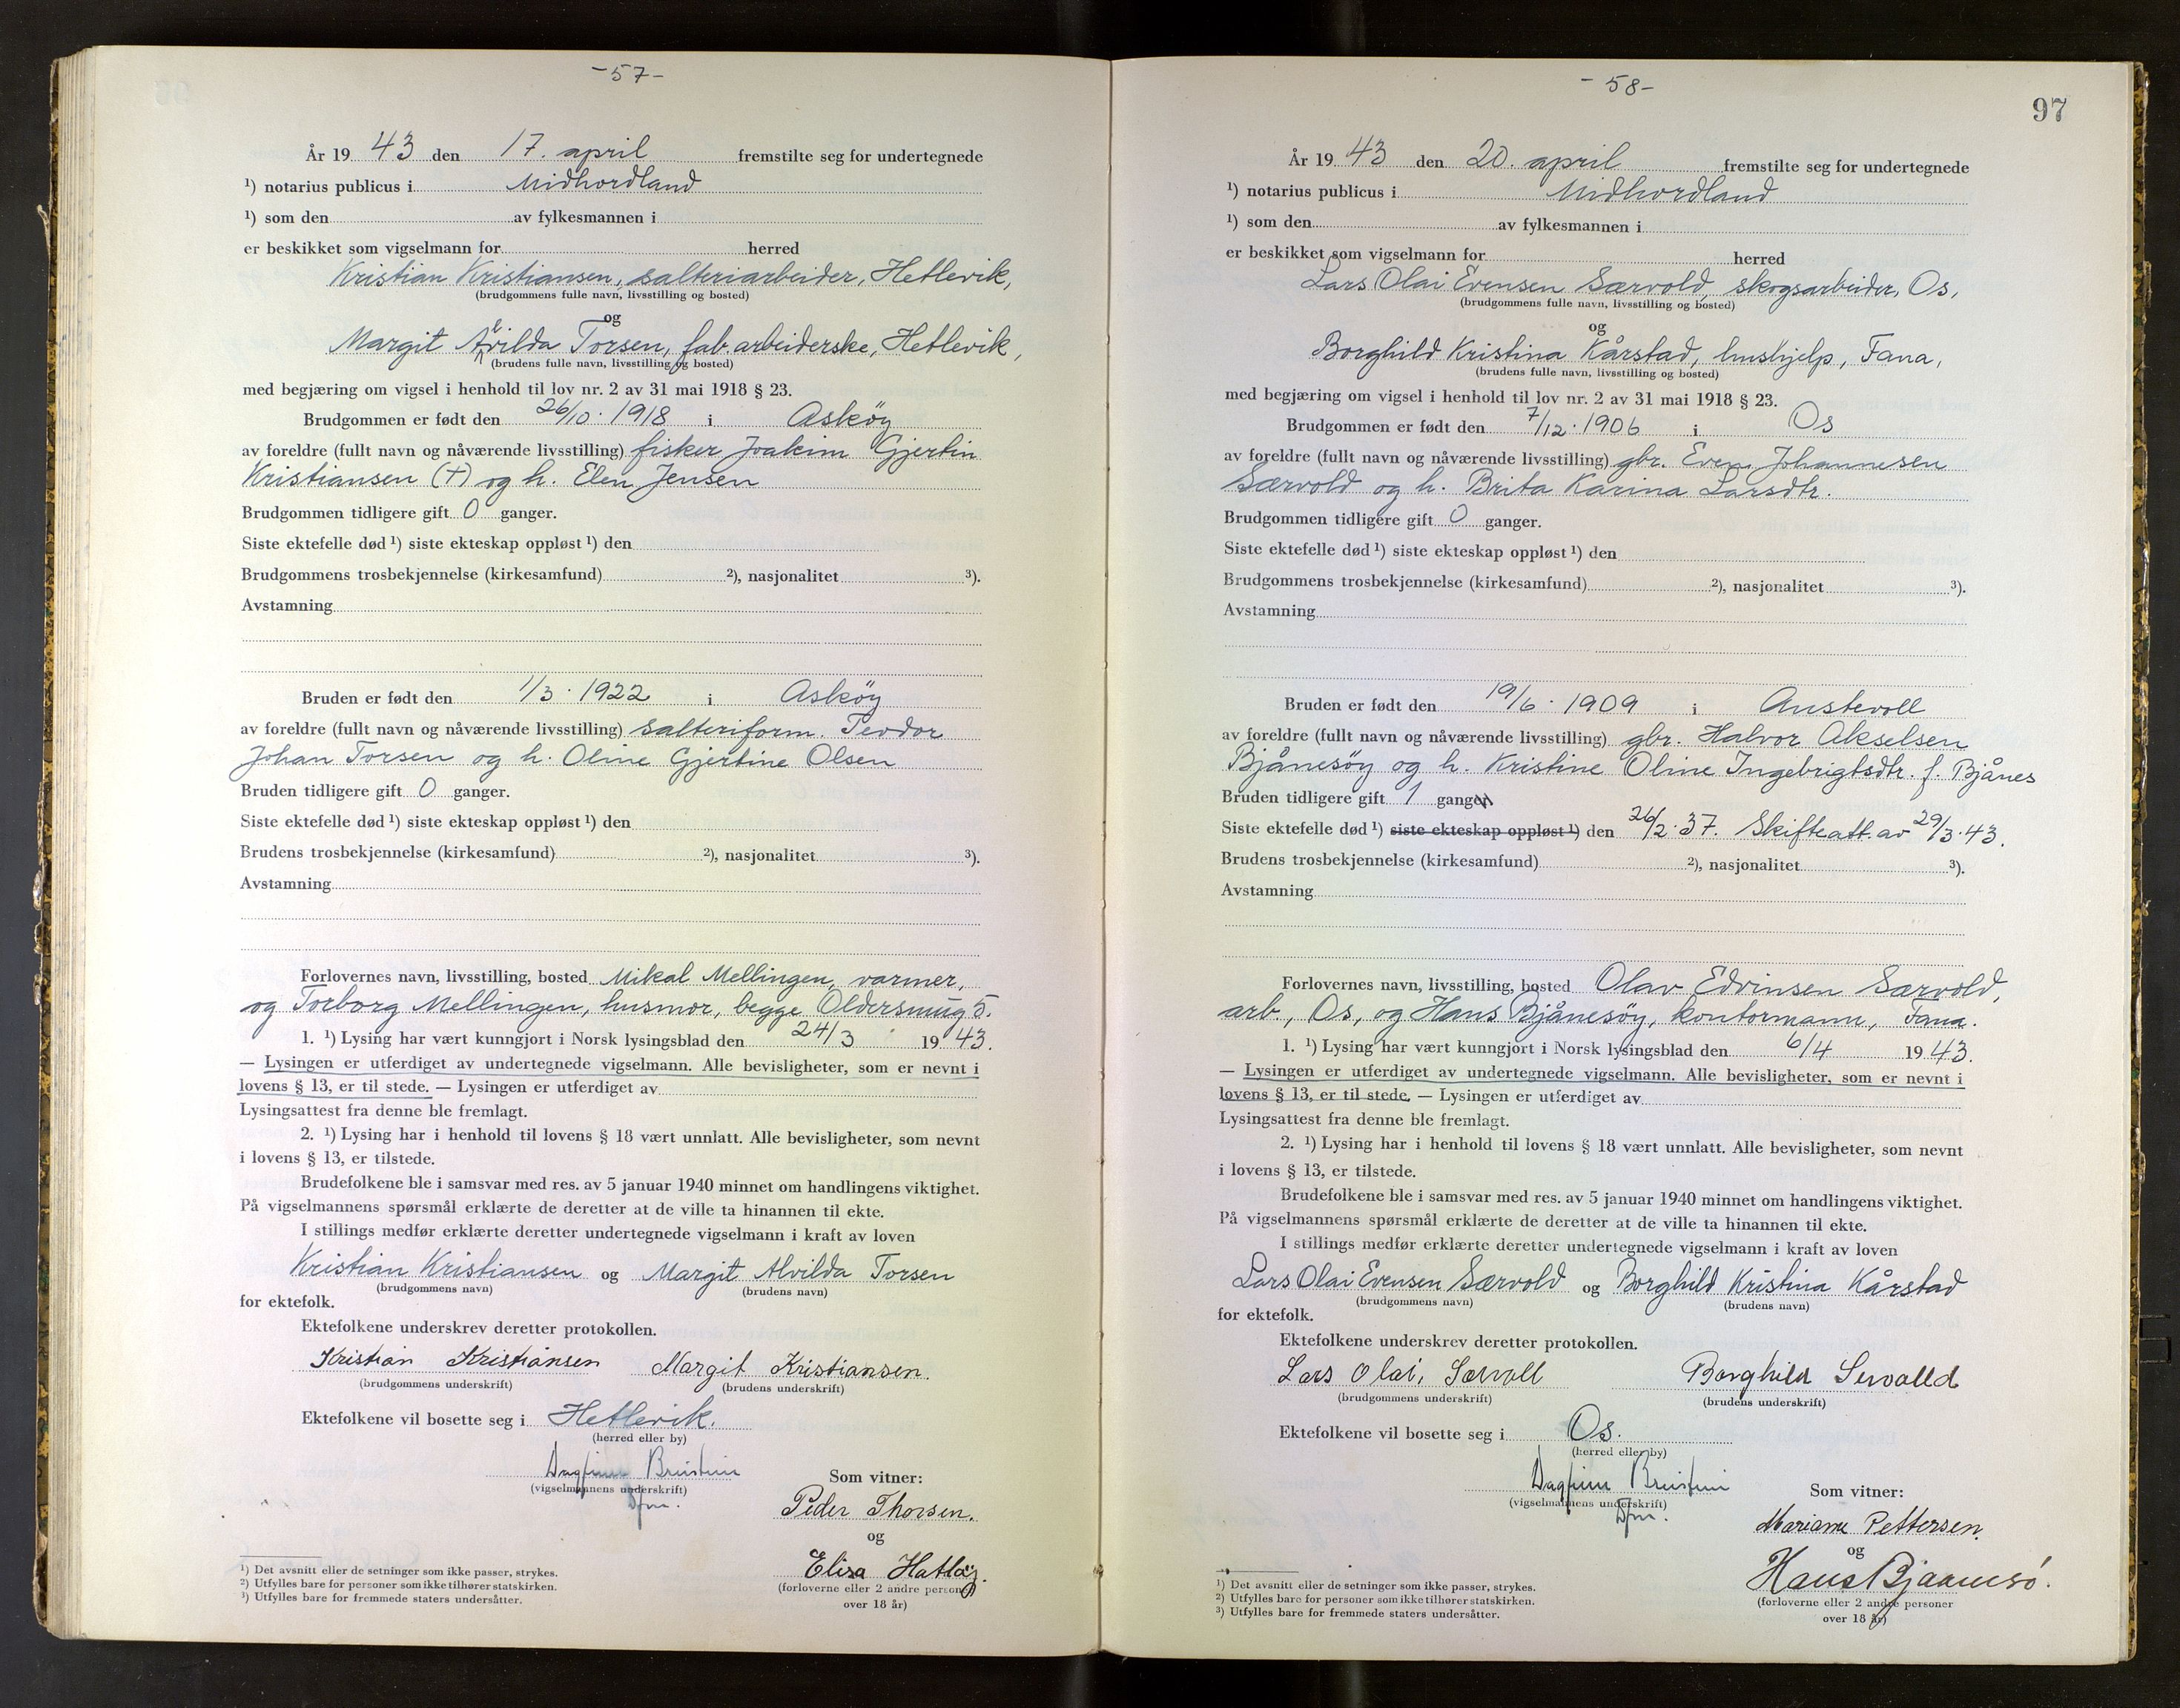 -57-
År 19 43 den 17. april fremstilte seg for undertegnede
¹) notarius publicus i Midhordland
¹) som den av fylkesmannen i
er beskikket som vigselmann for herred
Kristian Kristiansen, salteriarbeider, Hetlevik,
(brudgommens fulle navn, livsstilling og bosted)
og
Margit Alvilda Torsen, fab.arbeiderske, Hetlevik,
(brudens fulle navn, livsstilling og bosted)
med begjæring om vigsel i henhold til lov nr. 2 av 31 mai 1918 § 23.
Brudgommen er født den 26/10. 1918 i Asköy
av foreldre (fullt navn og nåværende livsstilling) fisker Joakim Gjertin
Kristiansen (†) og h. Elen Jensen
Brudgommen tidligere gift 0 ganger.
Siste ektefelle død ¹) siste ekteskap oppløst ¹) den
Brudgommens trosbekjennelse (kirkesamfund) ²), nasjonalitet ³).
Avstamning
Bruden er født den 1/3. 1922 i Asköy
av foreldre (fullt navn og nåværende livsstilling) salteriform. Teodor
Johan Torsen og h. Oline Gjertine Olsen
Bruden tidligere gift 0 ganger.
Siste ektefelle død ¹) siste ekteskap oppløst ¹) den
Brudens trosbekjennelse (kirkesamfund) ²), nasjonalitet ³).
Avstamning
Forlovernes navn, livsstilling, bosted Mikal Mellingen, varmer,
og Torborg Mellingen, husmor, begge Oldersmug 5.
1. ¹) Lysing har vært kunngjort i Norsk lysingsblad den 24/3 19 43.
— Lysingen er utferdiget av undertegnede vigselmann. Alle bevisligheter, som er nevnt i
lovens § 13, er til stede. — Lysingen er utferdiget av
Lysingsattest fra denne ble fremlagt.
2. ¹) Lysing har i henhold til lovens § 18 vært unnlatt. Alle bevisligheter, som nevnt
i lovens § 13, er tilstede.
Brudefolkene ble i samsvar med res. av 5 januar 1940 minnet om handlingens viktighet.
På vigselmannens spørsmål erklærte de deretter at de ville ta hinannen til ekte.
I stillings medfør erklærte deretter undertegnede vigselmann i kraft av loven
Kristian Kristiansen og Margit Alvilda Torsen
(brudgommens navn) (brudens navn)
for ektefolk.
Ektefolkene underskrev deretter protokollen.
Kristian Kristiansen Margit Kristiansen.
(brudgommens underskrift) (brudens underskrift)
Ektefolkene vil bosette seg i Hetlevik.
(herred eller by)
Dagfinn
(vigselmannens underskrift)
Dfm.
Som vitner:
Peder Thorsen.
og
Elisa Hatløy.
(forloverne eller 2 andre personer
over 18 år)
¹) Det avsnitt eller de setninger som ikke passer, strykes.
²) Utfylles bare for personer som ikke tilhører statskirken.
³) Utfylles bare for fremmede staters undersåtter.
-58-
97
År 19 43 den 20. april fremstilte seg for undertegnede
¹) notarius publicus i Midhordland
¹) som den av fylkesmannen i
er beskikket som vigselmann for herred
Lars Olai Evensen Særvold, skogsarbeider, Os,
(brudgommens fulle navn, livsstilling og bosted)
og
Borghild Kristina Kårstad, hushjelp, Fana,
(brudens fulle navn, livsstilling og bosted)
med begjæring om vigsel i henhold til lov nr. 2 av 31 mai 1918 § 23.
Brudgommen er født den 7/12. 1906 i Os
av foreldre (fullt navn og nåværende livsstilling) gbr. Even Johannesen
Særvold og h. Brita Karina Larsdtr.
Brudgommen tidligere gift 0 ganger.
Siste ektefelle død ¹) siste ekteskap oppløst ¹) den
Brudgommens trosbekjennelse (kirkesamfund) ²), nasjonalitet ³).
Avstamning
Bruden er født den 19/6. 1909 i Austevoll
av foreldre (fullt navn og nåværende livsstilling) gbr. Halvor Akselsen
Bjånesöy og h. Kristine Oline Ingebrigtsdtr. f. Bjånes
Bruden tidligere gift 1 ganger
Siste ektefelle død ¹) siste ekteskap oppløst ¹) den 26/2. 37. Skifteatt. av 29/3. 43.
Brudens trosbekjennelse (kirkesamfund) ²), nasjonalitet ³).
Avstamning
Forlovernes navn, livsstilling, bosted Olav Edvinsen Særvold,
arb., Os, og Hans Bjånesöy, kontormann, Fana.
1. ¹) Lysing har vært kunngjort i Norsk lysingsblad den 6/4 19 43.
— Lysingen er utferdiget av undertegnede vigselmann. Alle bevisligheter, som er nevnt i
lovens § 13, er til stede. — Lysingen er utferdiget av
Lysingsattest fra denne ble fremlagt.
2. ¹) Lysing har i henhold til lovens § 18 vært unnlatt. Alle bevisligheter, som nevnt
i lovens § 13, er tilstede.
Brudefolkene ble i samsvar med res. av 5 januar 1940 minnet om handlingens viktighet.
På vigselmannens spørsmål erklærte de deretter at de ville ta hinannen til ekte.
I stillings medfør erklærte deretter undertegnede vigselmann i kraft av loven
Lars Olai Evensen Særvold og Borghild Kristina Kårstad
(brudgommens navn) (brudens navn)
for ektefolk.
Ektefolkene underskrev deretter protokollen.
Lars Olai, Særvoll Borghild Servolld
(brudgommens underskrift) (brudens underskrift)
Ektefolkene vil bosette seg i Os.
(herred eller by)
Dagfinn
(vigselmannens underskrift)
Dfm.
Som vitner:
Marianne Pettersen.
og
Hans Bjaanesö.
(forloverne eller 2 andre personer
over 18 år)
¹) Det avsnitt eller de setninger som ikke passer, strykes.
²) Utfylles bare for personer som ikke tilhører statskirken.
³) Utfylles bare for fremmede staters undersåtter.